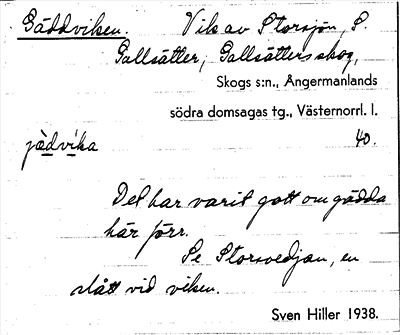 Gäddviken. Vik av Storsjön, S.
Gallsätter, Gallsätters skog,
Skogs s:n., Ångermanlands
södra domsagas tg., Västernorrl. l.
jèdvika 40.
Det har varit gott om gädda
här förr.
Se Storsvedjan, en
slått vid viken.
Sven Hiller 1938.